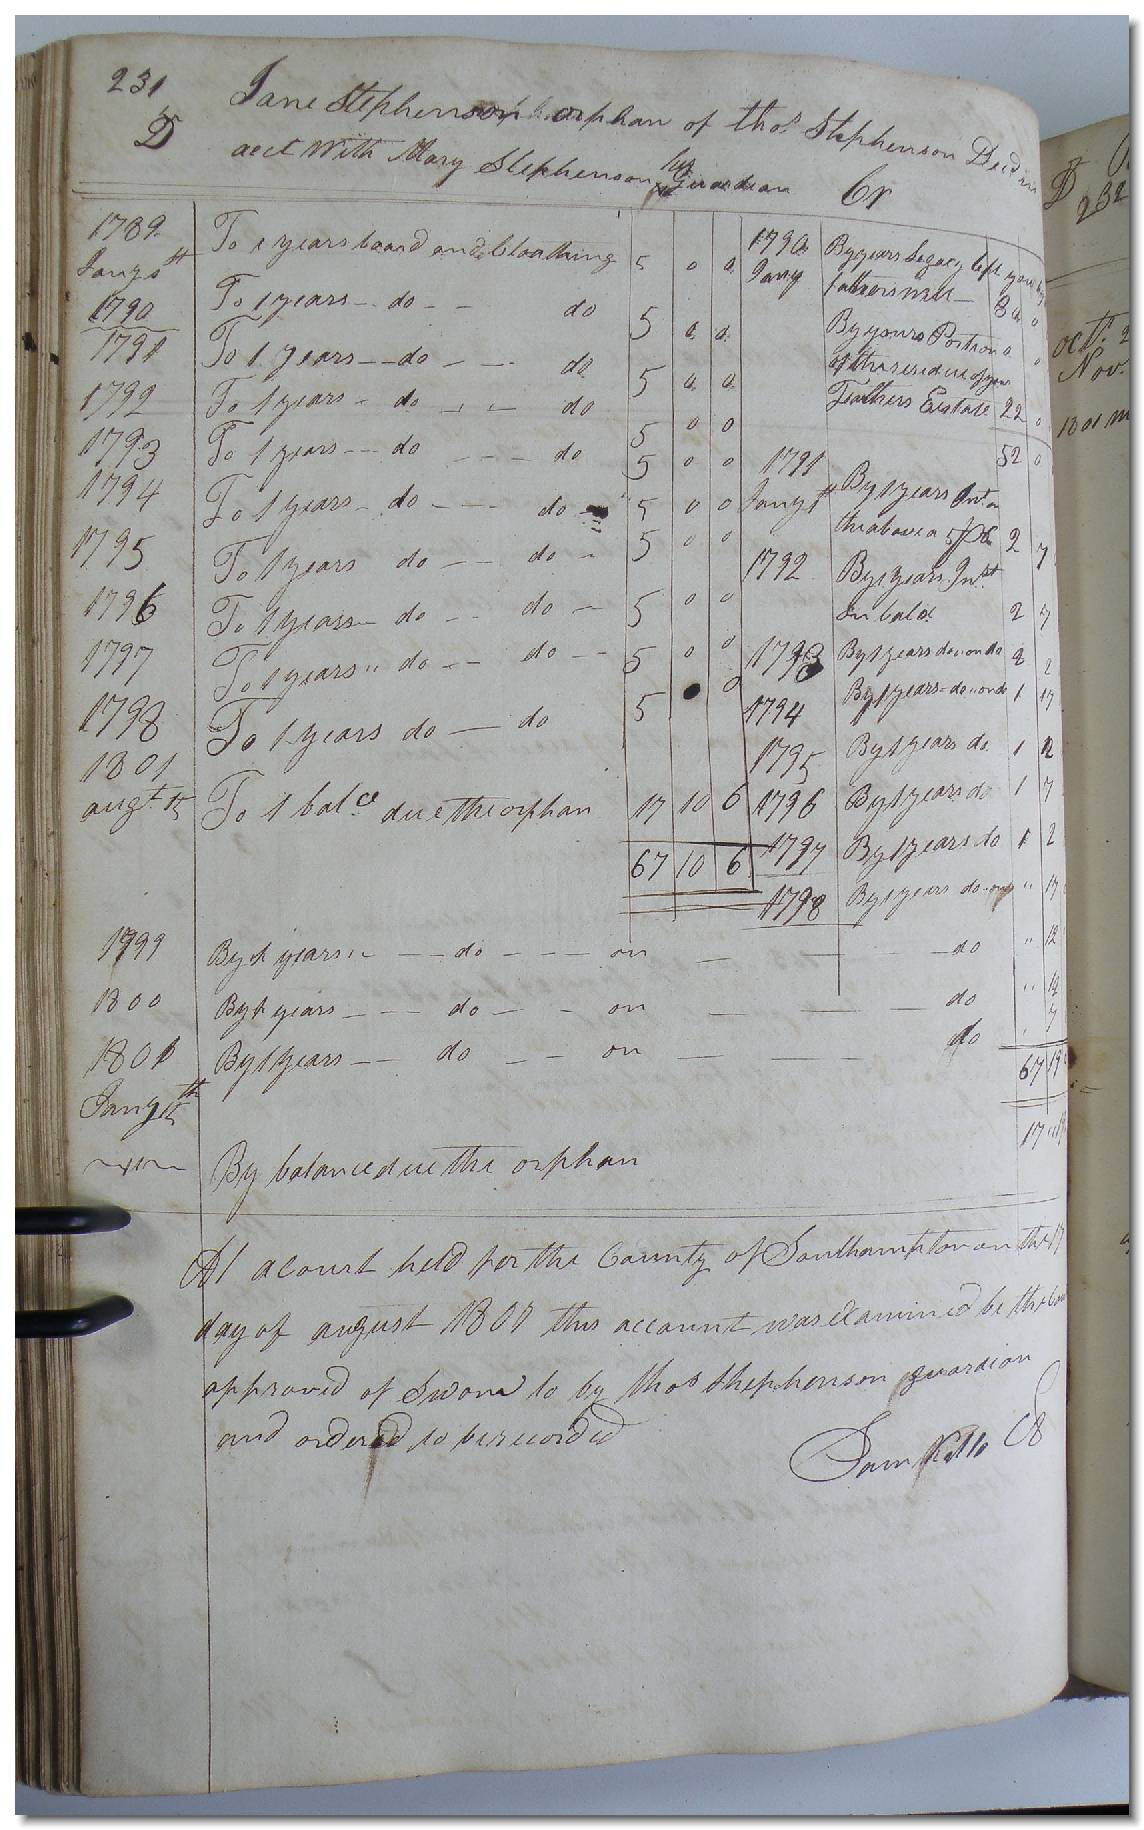 231
Jane Stephenson orphan of Thos Stephenson Decd in
D
acct With Mary Stephenson her Guardian Cr
1789
Jany 8th
To 1 years board and Cloathing 5 0 0
1790
To 1 years -- do -- do 5 0 0
1791
To 1 years -- do -- do 5 0 0
1792
To 1 years - do -- do 5 0 0
1793
To 1 years -- do -- do 5 0 0
1794
To 1 years - do -- do 5 0 0
1795
To 1 years do -- do 5 0 0
1796
To 1 years - do -- do 5 0 0
1797
To 1 years " do -- do 5 0 0
1798
To 1 years do -- do 5 0
1801
augt
To 1 balce due the orphan 17 10 6
67 10 6
1790
Jany
By yours Legacy left you by
fathers will 30 0
By yours Portion
of the residue of your
Feathers Eestate 22 0
52 0
1791
Jany
By 1 years Int on
the above a 5 pCt 2 7
1792
By 1 years Inst
on bale 2 7
1793
By 1 years do on do 2 2
1794
By 1 years - do " on do 1 17
1795
By 1 years do 1 12
1796
By 1 years do 1 7
1797
By 1 years do 1 2
1798
By 1 years do - on " 17
1799
By 1 years " -- do --- on -- do " 12
1800
By 1 years --- do -- on -- do " 12
1801
By 1 years -- do -- on -- do " 7
Jany
67 19
17
By balance due the orphan
At a Court held for the County of Southampton on the 17
day of august 1801 this account was Examined be the
approved of Sworn to by Thos Shephenson guardian
and ordered to be recorded
Sam Kello CS
D
232
octr 2
Nov.
1801